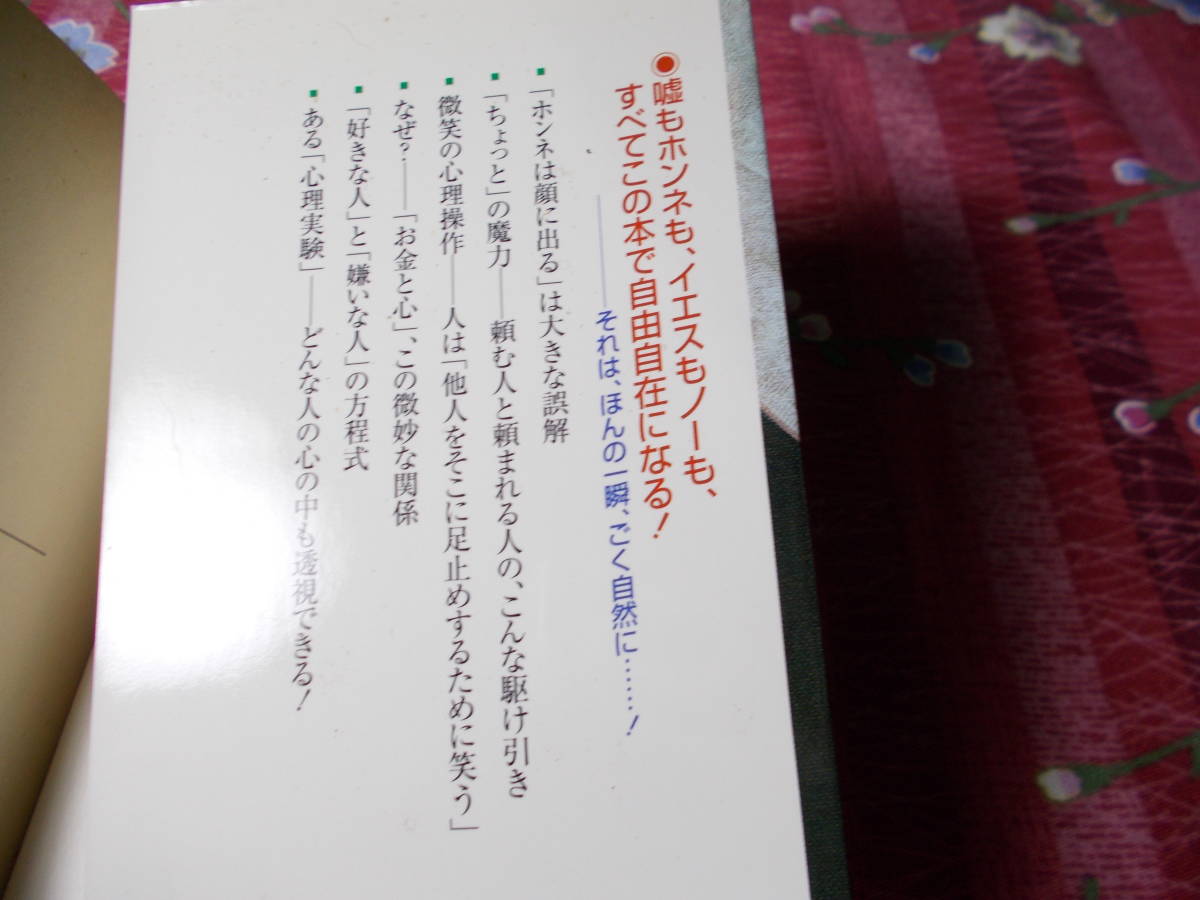 ●嘘もホンネも、イエスもノーも、
すべてこの本で自由自在になる！
――それは、ほんの一瞬、ごく自然に……！
▪「ホンネは顔に出る」は大きな誤解
▪「ちょっと」の魔力――頼む人と頼まれる人の、こんな駆け引き
▪微笑の心理操作――人は「他人をそこに足止めするために笑う」
▪なぜ？――「お金と心」、この微妙な関係
▪「好きな人」と「嫌いな人」の方程式
▪ある「心理実験」――どんな人の心の中も透視できる！